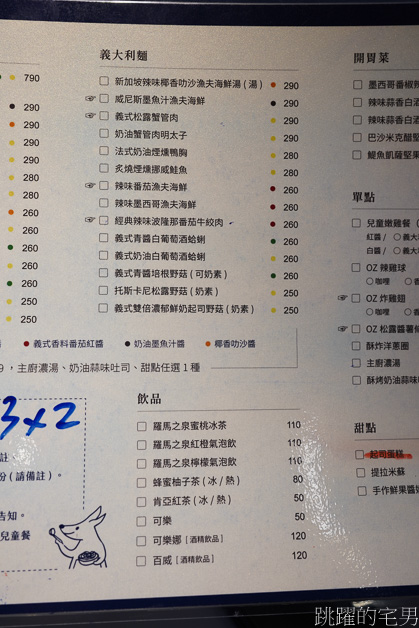 790
290
290
290
290
280
280
260
260
260
260
260
250
250
義大利麵
新加坡辣味椰香叻沙漁夫海鮮湯 ( 湯 ) 290
威尼斯墨魚汁漁夫海鮮 290
義式松露蟹管肉 290
奶油蟹管肉明太子 290
法式奶油煙燻鴨胸 280
炙燒煙燻挪威鮭魚 280
辣味番茄漁夫海鮮 260
辣味墨西哥漁夫海鮮 260
經典辣味波隆那番茄牛絞肉 260
義式青醬白葡萄酒蛤蜊 260
義式奶油白葡萄酒蛤蜊 260
義式青醬培根野菇 ( 可奶素 ) 260
托斯卡尼松露野菇 ( 奶素 ) 250
義式雙倍濃郁鮮奶起司野菇 ( 奶素 ) 250
義式香料番茄紅醬 奶油墨魚白醬 椰香叻沙醬
9 ，主廚濃湯、奶油蒜味吐司、甜點任選 1 種
3x2
註
份 ( 請備註 ) 。
告知。
兒童餐
飲品
羅馬之泉蜜桃冰茶 110
羅馬之泉紅橙氣泡飲 110
羅馬之泉檸檬氣泡飲 110
蜂蜜柚子茶 ( 冰 / 熱 ) 80
肯亞紅茶 ( 冰 / 熱 ) 50
可樂 50
可樂娜 [ 酒精飲品 ] 120
百威 [ 酒精飲品 ] 120
開胃菜
墨西哥番椒辣
辣味蒜香白酒
辣味蒜香白酒
巴沙米克醋堅
鯷魚凱薩堅果
單點
兒童嫩雞餐 (
紅醬 / ○ 義大
白醬 / ○ 義大
OZ 辣雞球
○ 咖哩 ○ 香
OZ 炸雞翅
○ 咖哩 ○ 香
OZ 松露醬薯條
酥炸洋蔥圈
主廚濃湯
酥烤奶油蒜味
甜點
起司蛋糕
提拉米蘇
手作鮮果醬奶
跳躍的宅男